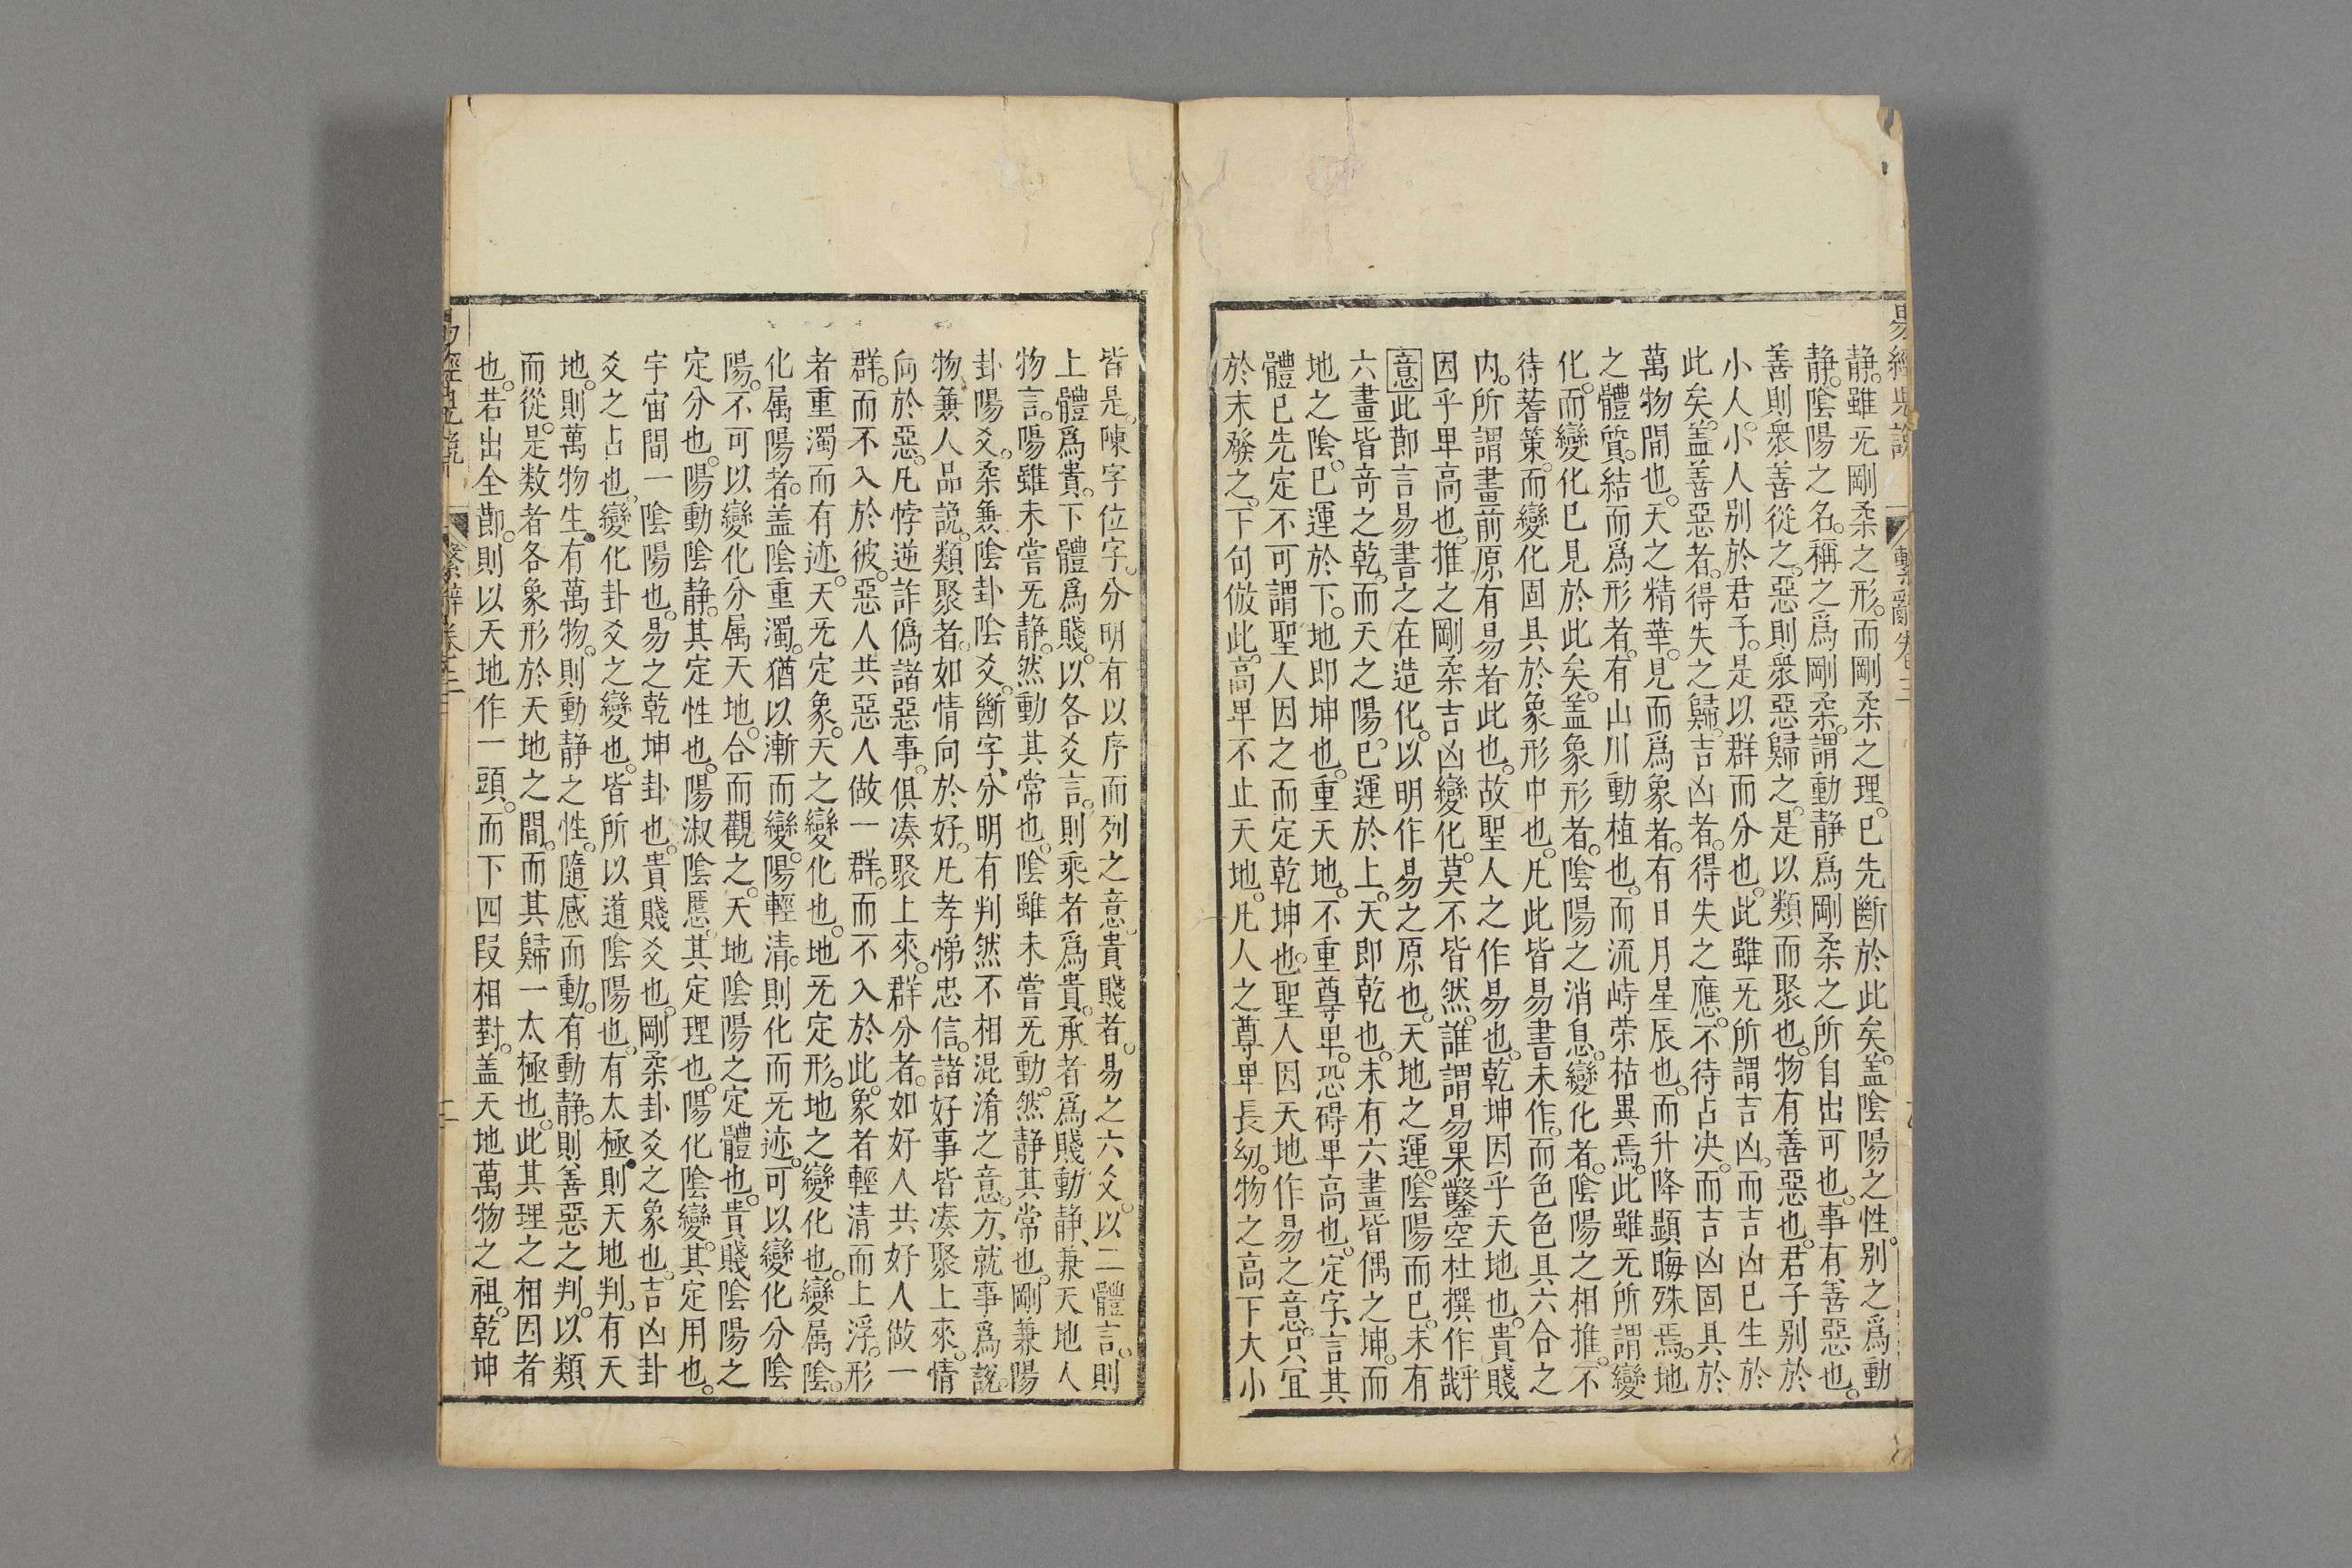 靜。雖无剛柔之形。而剛柔之理。已先斷於此矣。蓋陰陽之性。别之爲動
靜。陰陽之名。稱之爲剛柔。謂動靜爲剛柔之所自出可也。事有善惡也。
善則衆善從之。惡則衆惡歸之。是以類而聚也。物有善惡也。君子别於
小人。小人别於君子。是以群而分也。此雖无所謂吉凶。而吉凶已生於
此矣。蓋善惡者。得失之歸。吉凶者。得失之應。不待占决。而吉凶固具於
萬物間也。天之精華。見而爲象者。有日月星辰也。而升降顯晦殊焉。地
之體質。結而爲形者。有山川動植也。而流峙荣枯異焉。此雖无所謂變
化。而變化已見於此矣。蓋象形者。陰陽之消息。變化者。陰陽之相推。不
待蓍策。而變化固具於象形中也。凡此皆易書未作。而色色具六合之
内。所謂畫前原有易者此也。故聖人之作易也。乾坤因乎天地也。貴賤
因乎卑高也。推之剛柔吉凶變化。莫不皆然。誰謂易果鑿空杜撰作哉
意此節言易書之在造化。以明作易之原也。天地之運。陰陽而已。未有
六畫皆竒之乾。而天之陽。已運於上。天即乾也。未有六畫皆偶之坤。而
地之陰。已運於下。地即坤也。重天地。不重尊卑。恐碍卑高也。定字、言其
體已先定不可謂聖人因之而定乾坤也。聖人因天地作易之意。只宜
於末發之。下句倣此。高卑不止天地。凡人之尊卑長幼。物之高下大小
皆是。陳字位字。分明有以序而列之意。貴賤者。易之六爻。以二體言。則
上體爲貴。下體爲賤。以各爻言。則乘者爲貴。承者爲賤。動靜、兼天地人
物言。陽雖未嘗无靜。然動其常也。陰雖未嘗无動。然靜其常也。剛兼陽
卦陽爻。柔兼陰卦陰爻。斷字、分明有判然不相混淆之意。方、就事爲說。
物兼人品說。類聚者。如情向於好。凡孝悌忠信。諸好事皆湊聚上來。情
向於惡。凡悖逆詐僞諸惡事。俱湊聚上來。群分者。如好人共好人做一
群。而不入於彼。惡人共惡人做一群。而不入於此。象者輕清而上浮。形
者重濁而有迹。天无定象。天之變化也。地无定形。地之變化也。變属陰。
化属陽者。蓋陰重濁。猶以漸而變。陽輕清。則化而无迹。可以變化分陰
陽。不可以變化分属天地。合而觀之。天地陰陽之定體也。貴賤陰陽之
定分也。陽動陰靜。其定性也。陽淑陰慝。其定理也。陽化陰變。其定用也。
宇宙間一陰陽也。易之乾坤卦也。貴賤爻也。剛柔卦爻之象也。吉凶卦
爻之占也。變化卦爻之變也。皆所以道陰陽也。有太極。則天地判。有天
地。則萬物生。有萬物。則動靜之性。隨感而動。有動靜。則善惡之判。以類
而從。是数者各象形於天地之間。而其歸一太極也。此其理之相因者
也。若出全節。則以天地作一頭。而下四段相對。蓋天地萬物之祖。乾坤